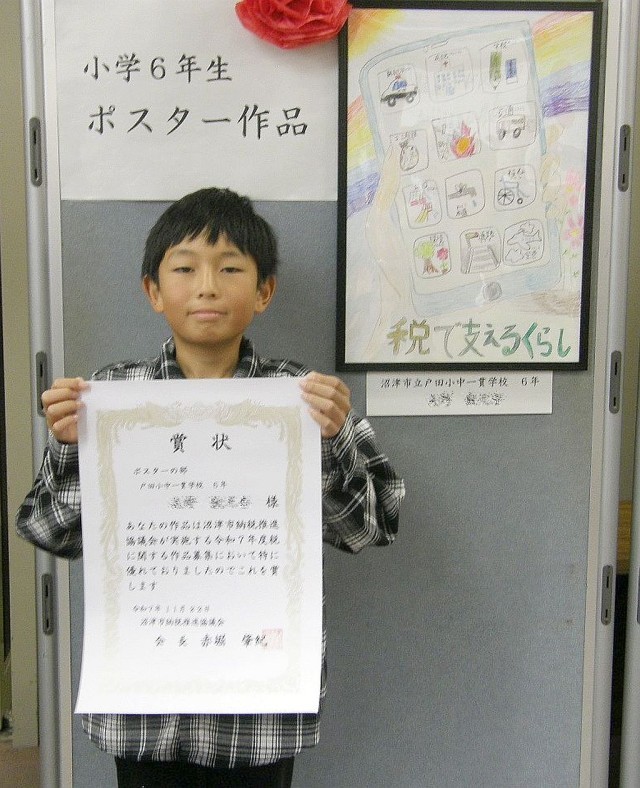 小学6年生
ポスター作品
税で支えるくらし
沼津市立戸田小中一貫学校 6年
賞状
ポスターの部
戸田小中一貫学校 6年
様
あなたの作品は沼津市納税推進
協議会が実施する令和7年度税
に関する作品募集において特に
優れておりましたのでこれを賞
します
令和7年11月22日
沼津市納税推進協議会
会長 赤堀 肇紀